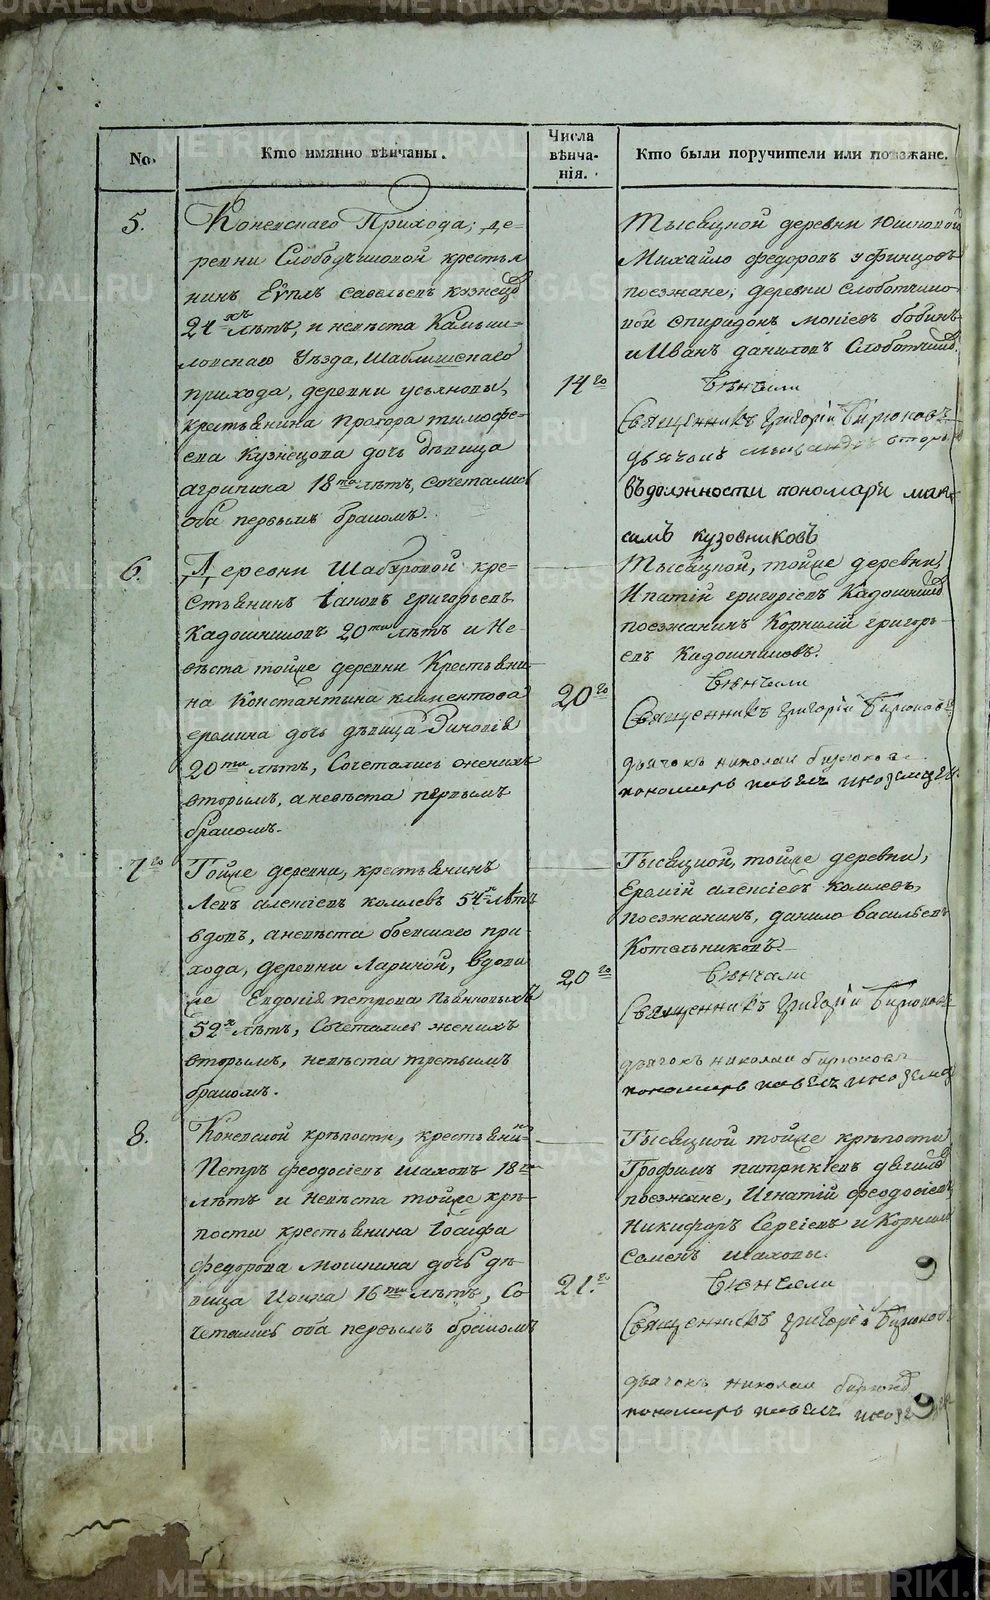 No.
Кто имянно вѣнчаны.
Числа
вѣнча-
нія.
Кто были поручители или поѣзжане.
5.
Коневскаго Прихода, де-
ревни Слободчиковой крестья
нинъ Еѵплъ савельевъ кузнецов
24хъ лѣтъ, и невѣста Камыш-
ловскаго Уѣзда, Шаблишскаго
прихода, деревни усьяновы,
крестьянина Прохора тимофе-
ева Кузнецова дочь дѣвица
агрипина 18ти лѣтъ, сочетались
оба первымъ бракомъ.
14го
Тысяцкой деревни Юшковой
Михайло федоровъ уфинцовъ
поезжане, деревни слоботчико
вой спиридонъ бобинъ
и Иванъ даниловъ Слоботчик
вѣнчали
Священникъ григорій Бирюковъ
дьячокъ
въ должности пономаря мак
симъ кузовниковъ
6.
Деревни Шабуровой кре-
стьянинъ Іаковъ григорьевъ
Кадошниковъ 20ти лѣтъ и Не-
вѣста тойже деревни Крестьяни
на Константина климентова
еремина дочь дѣвица Зиновія
20ти лѣтъ, Сочетались женихъ
вторымъ, а невѣста первымъ
бракомъ.
20го
Тысяцкой, тойже деревни,
Ипатій григоріевъ Кадошник
поезжанинъ Корнилій григорь
евъ Кадошниковъ.
вѣнчали
Священникъ григорій Бирюковъ
дьячокъ николаи бирюковъ
пономарь павелъ иноземцев
7го
Тойже деревни, крестьянинъ
Левъ алексіевъ комлевъ 54х лѣтъ
вдовъ, а невѣста боевскаго при-
хода, деревни Лариной, вдова
же Евдокія петрова Пьянковыхъ
52х лѣтъ, Сочетались женихъ
вторымъ, невѣста третьимъ
бракомъ.
20го
Тысяцкой, тойже деревни,
Еремій алексіевъ комлевъ,
поезжанинъ, данило васильевъ
Котельниковъ
вѣнчали
Священникъ григорій Бирюковъ
дьячокъ николаи бирюковъ
пономарь павелъ иноземц
8.
Коневской крѣпости, крестьянинъ
Петръ феодосіевъ шаховъ 18ти
лѣтъ и невѣста тойже крѣ-
пости крестьянина Іосифа
федорова мошнина дочь дѣ-
вица Ирина 16ти лѣтъ, Со
четались оба первымъ бракомъ
21.го
Тысяцкой тойже крѣпости
Трофимъ патрикіевъ
поезжане, Игнатій феодосіевъ
Никифоръ Сергіевъ и Корнил
Семенъ шаховы.
9
вѣнчали
Священникъ григорей Бирюков
дьячокъ николаи бирюков
пономарь павелъ иноз
9